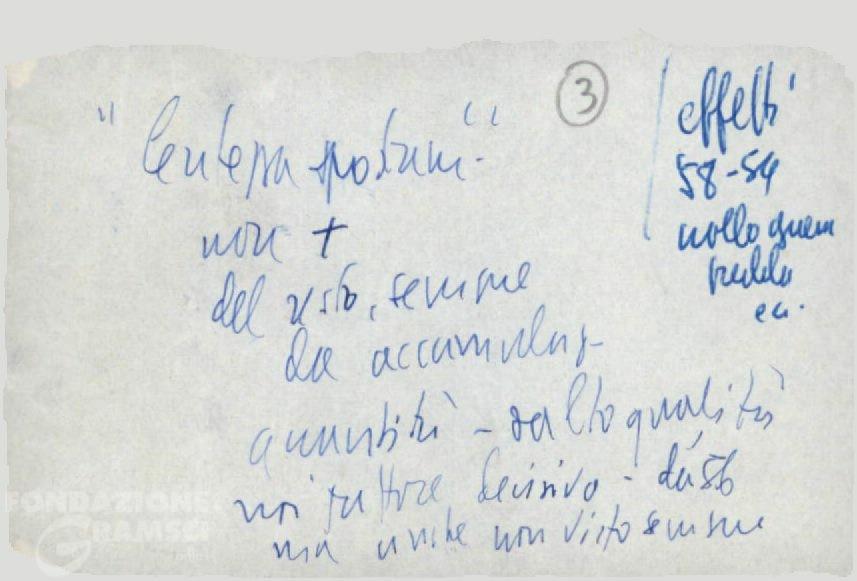 3
"lentezza spostam."
non +
del resto, sempre
da accumulaz-
quantità - salto qualità
noi fattore decisivo -
ma anche non visto sempre
effetti
58-54
guerra
fredda
ec.
FONDAZIONE
GRAMSCI